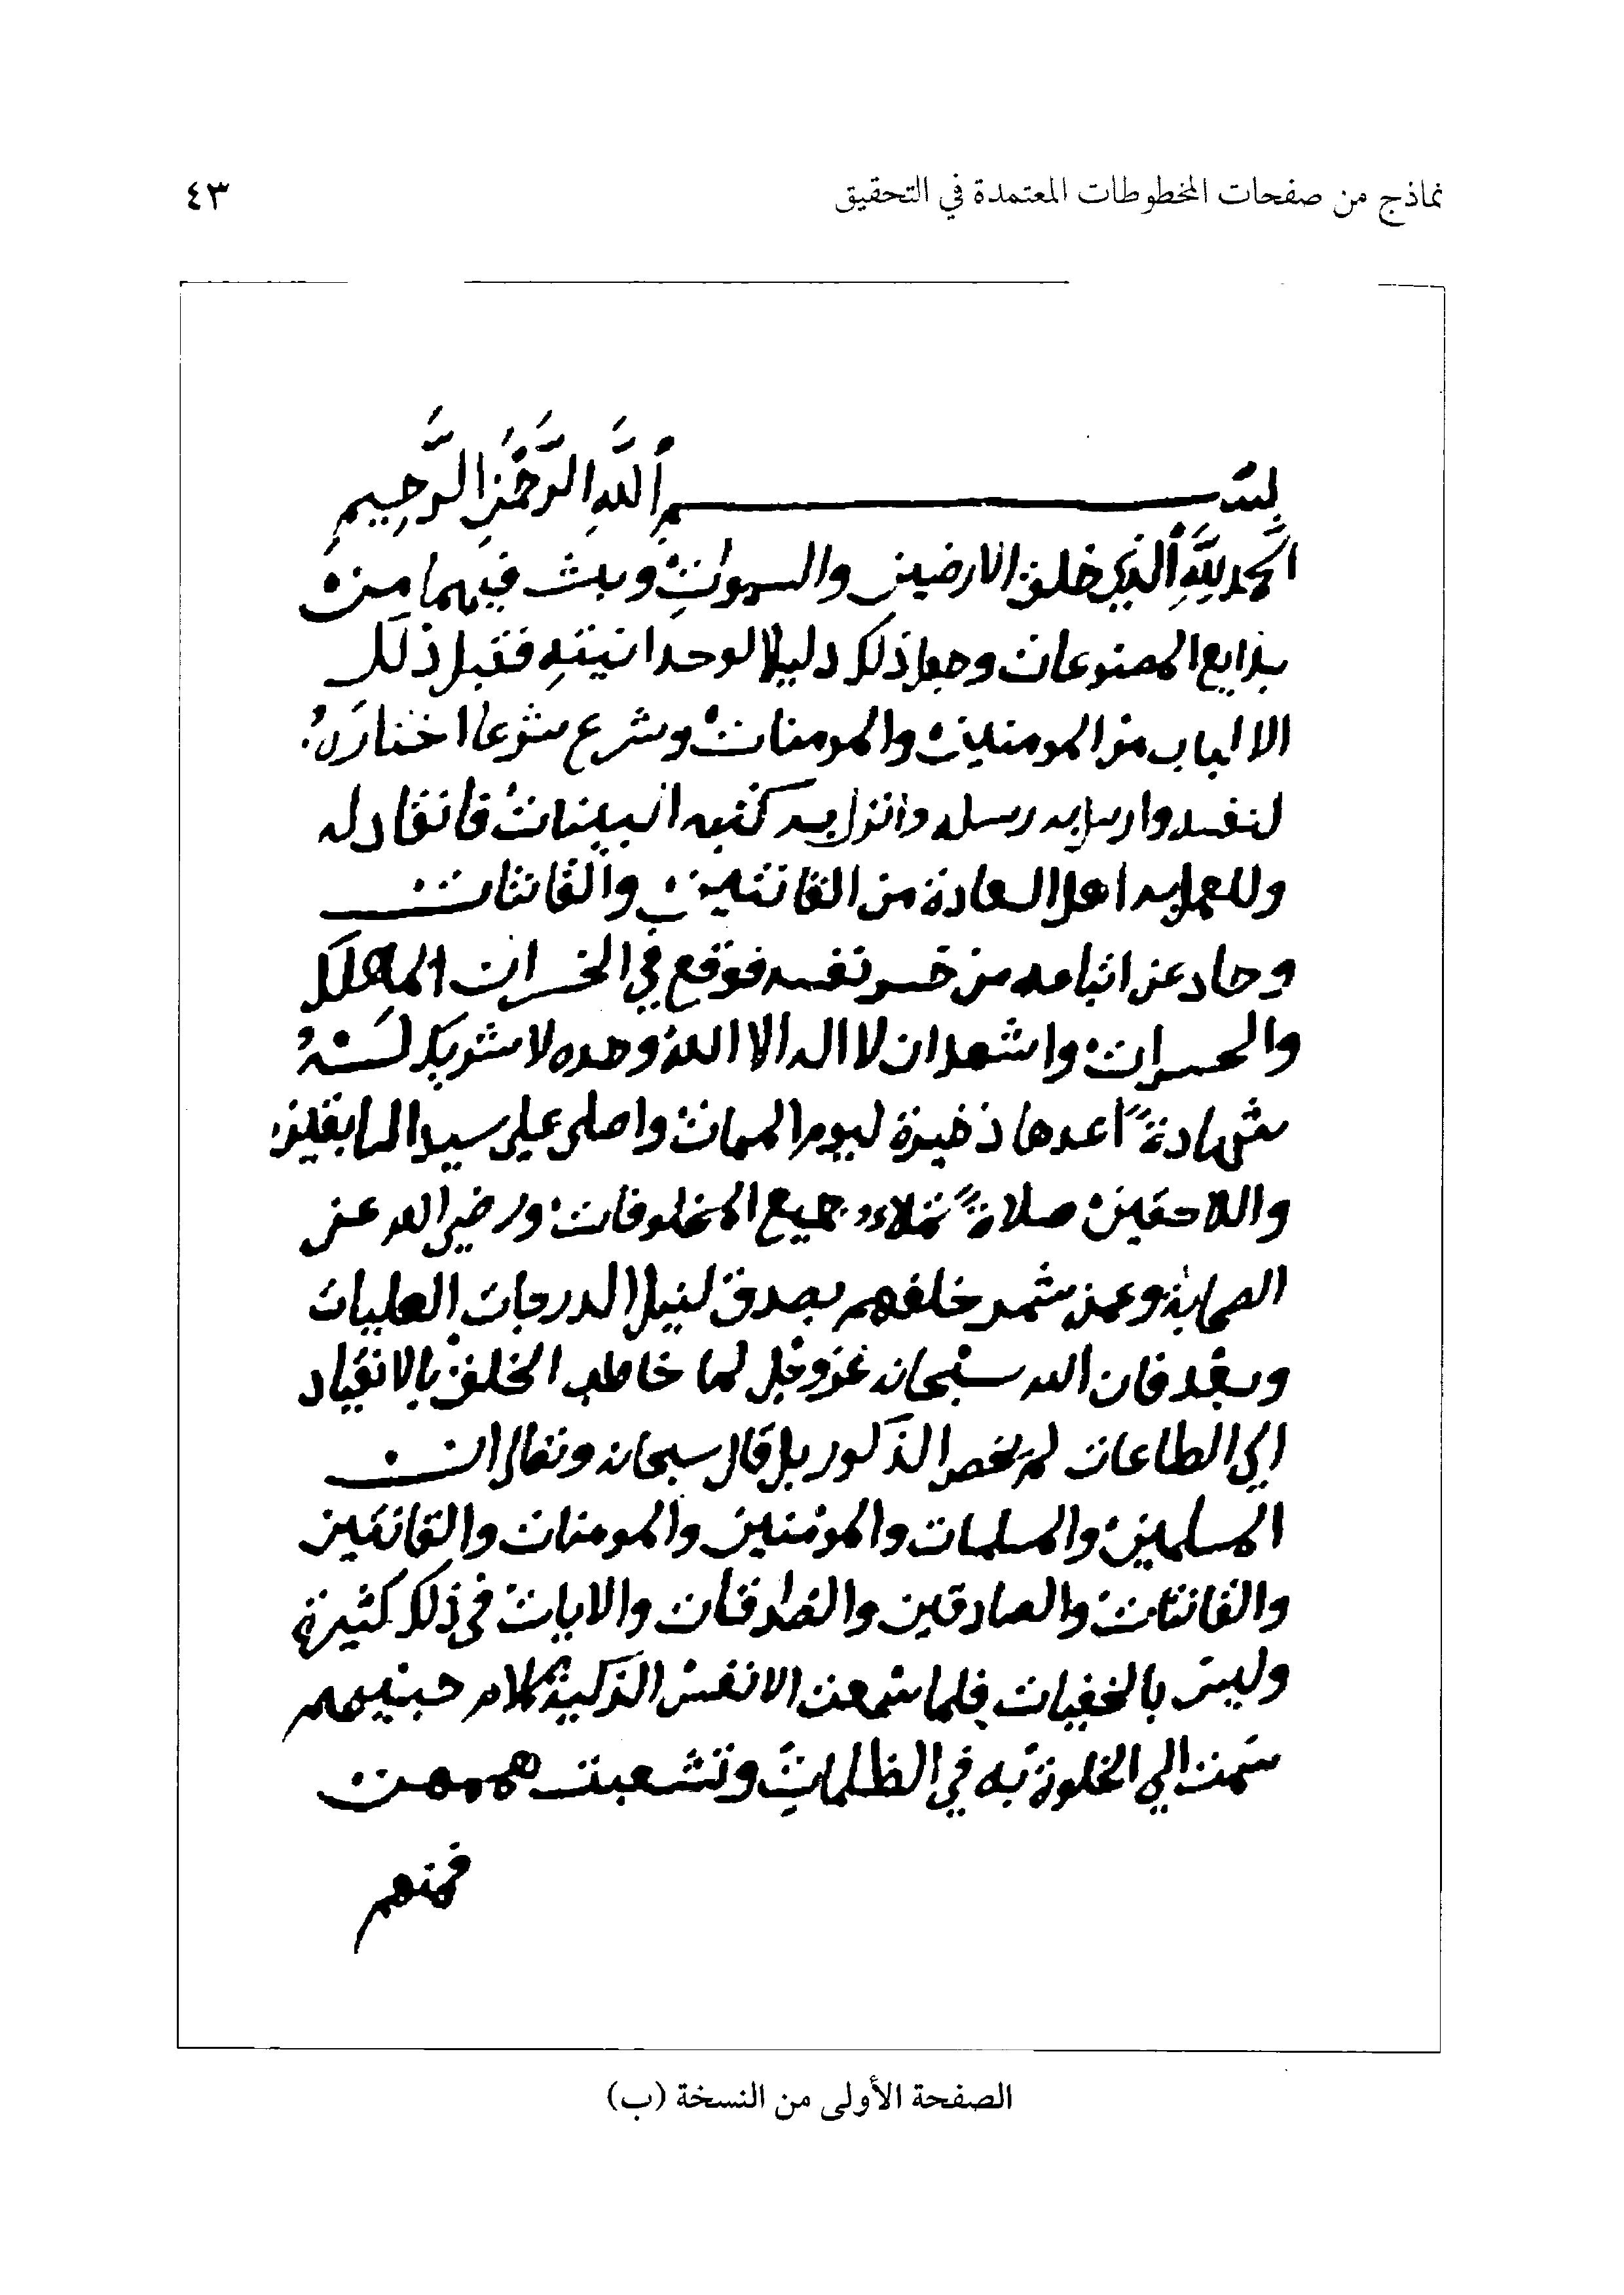 نماذج من صفحات المخطوطات المعتمدة في التحقيق ٤٣
بسم اللَّهِ الرَّحْمَنِ الرَّحِيمِ
الحمد لِلَّهِ الذي خلق الارضين والسموات وبث فيهما من
بدايع المصنوعات وجعل ذلك دليلا لوحدانيته فقبل ذلك
الالباب من المومنين والمومنات وشرع شرعا اختاره
لنفسه وارسل به رسله وانزل به كتبه البينات فانقاد له
وللعمل به اهل السعادة من القانتين والقانتات
وحاد عن اتباعه من خسر نفسه فوقع في الخسران المهلك
والحسرات واشهد ان لا اله الا الله وحده لا شريك له
شهادةً اعدها ذخيرة ليوم الممات واصلى على سيد السابقين
واللاحقين صلاةً تملاء جميع المخلوقات ورضي الله عن
الصحابة وعمن شمر خلفهم بصدق لنيل الدرجات العليات
وبعد فان الله سبحانه عز وجل لما خاطب الخلق بالانقياد
الى الطاعات لم يخص الذكور بل قال سبحانه وتعالى ان
المسلمين والمسلمات والمؤمنين والمومنات والقانتين
والقانتات والصادقين والصادقات والايات في ذلك كثيرة
وليس بالخفيات فلما سمعت الانفس الزكية كلام حبيبهم
سمت الي الخلوة به في الظلمات وتشعبت هممهن
فمنهم
الصفحة الأولى من النسخة (ب)